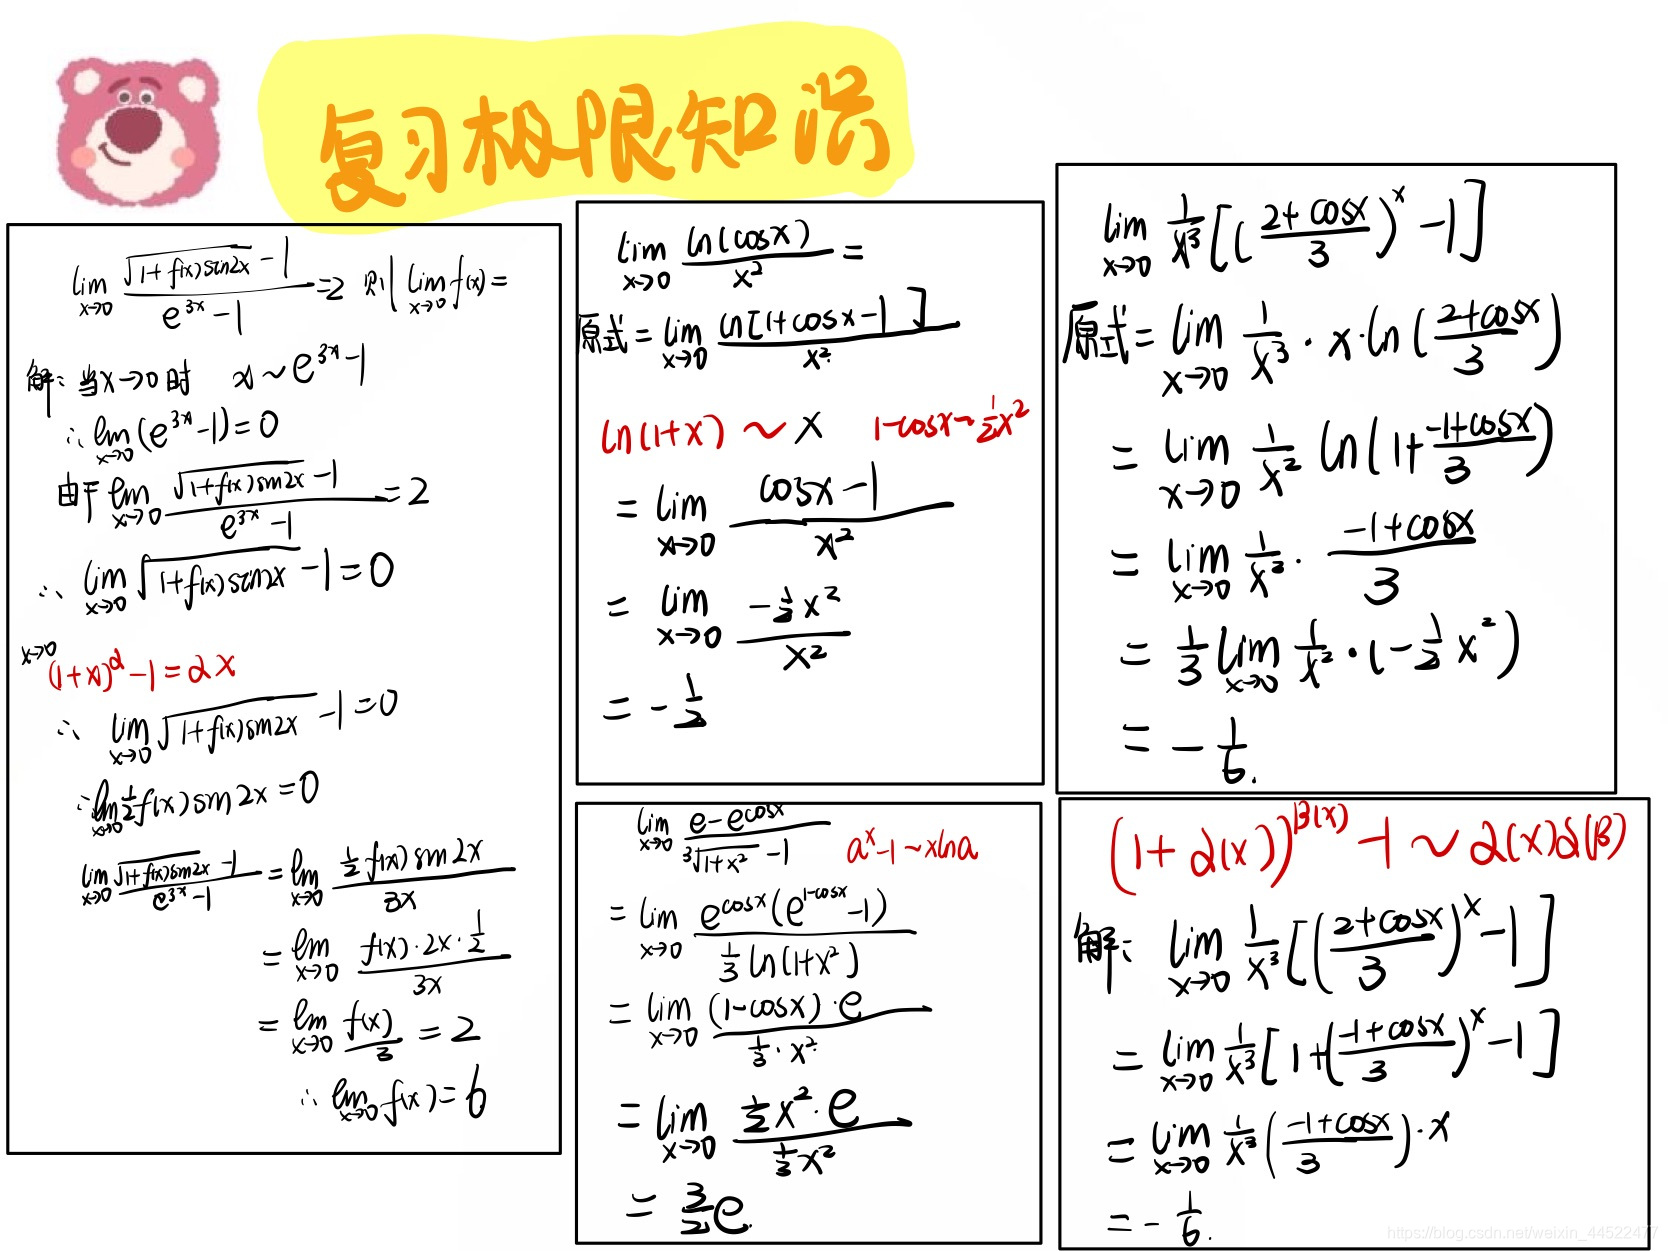 复习极限知识
lim x→0 (√(1+f(x)sin2x) -1)/(e^{3x}-1) =2 则 lim x→0 f(x)=
解: 当x→0时 x~e^{3x}-1
∴ lim x→0 (e^{3x}-1)=0
由于 lim x→0 (√(1+f(x)sin2x) -1)/(e^{3x}-1) =2
∴ lim x→0 √(1+f(x)sin2x) -1=0
x→0
(1+x)^α -1=αx
∴ lim x→0 √(1+f(x)sin2x) -1=0
∴ lim x→0 1/2 f(x)sin2x=0
lim x→0 (√(1+f(x)sin2x) -1)/(e^{3x}-1) = lim x→0 (1/2 f(x)sin2x)/(3x)
= lim x→0 (f(x)·2x·1/2)/(3x)
= lim x→0 f(x)/3 = 2
∴ lim x→0 f(x)=6
lim x→0 ln(cosx)/x² =
原式= lim x→0 ln[1+cosx-1]/x²
ln(1+x) ~ x 1-cosx~1/2x²
= lim x→0 (cosx-1)/x²
= lim x→0 (-1/2x²)/x²
= -1/2
lim x→0 1/x³[((2+cosx)/3)^x -1]
原式= lim x→0 1/x³·x·ln((2+cosx)/3)
= lim x→0 1/x² ln(1+(-1+cosx)/3)
= lim x→0 1/x²·(-1+cosx)/3
= 1/3 lim x→0 1/x²·(-1/2x²)
= -1/6.
lim x→0 (e-e^{cosx})/(³√(1+x²) -1) a^x-1~xlna
= lim x→0 (e^{cosx}(e^{1-cosx}-1))/(1/3 ln(1+x²))
= lim x→0 ((1-cosx)·e)/(1/3·x²)
= lim x→0 (1/2x²·e)/(1/3x²)
= 3/2e.
(1+α(x))^{β(x)} -1~α(x)α(β)
解: lim x→0 1/x³[((2+cosx)/3)^x -1]
= lim x→0 1/x³[1+((-1+cosx)/3)^x -1]
= lim x→0 1/x³((-1+cosx)/3)·x
= -1/6.
https://blog.csdn.net/weixin_44522477